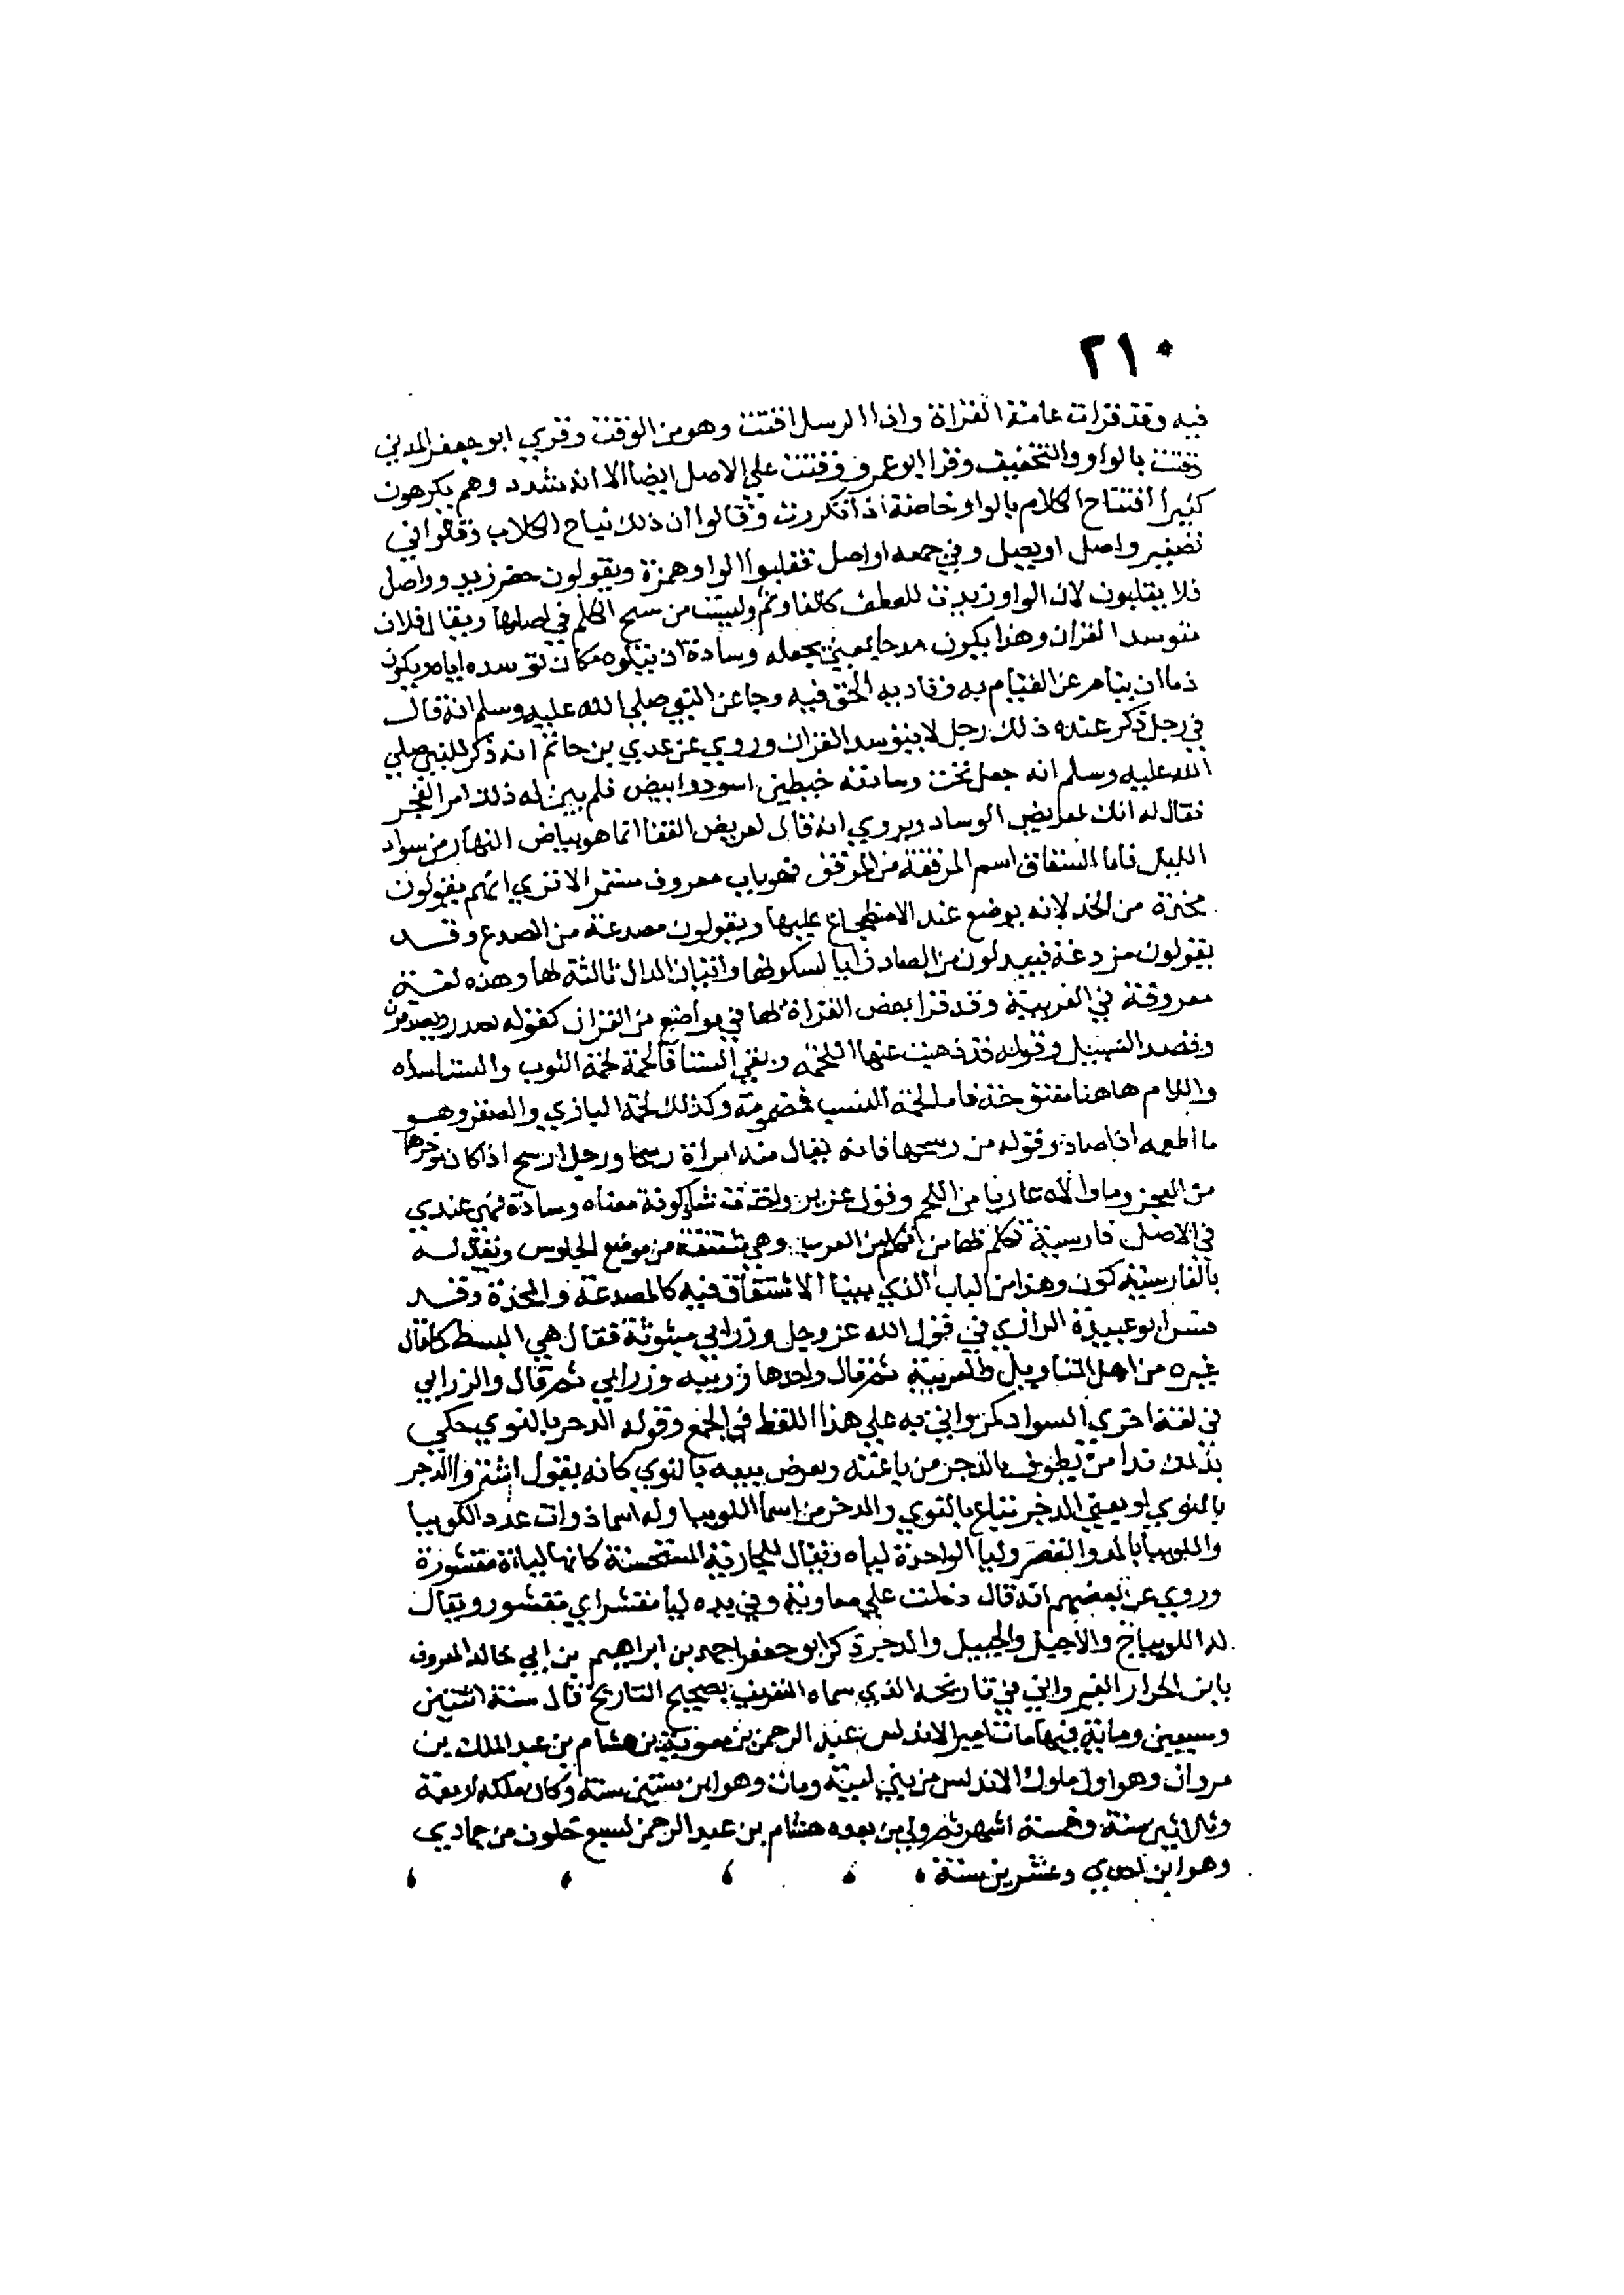 ٢١٠
فيه وقد قرات عامة القراة واذا الرسل اقتت وهو من الوقت وقري ابو جعفر المدني
وقتت بالواو والتخفيف وقرا ابو عمرو وقتت علي الاصل ايضا الا انه شدد وهم يكرهون
كثيرا افتتاح الكلام بالواو خاصة اذا تكررت وقالوا ان ذلك نباح الكلاب وقالوا في
تصغير واصل اويصل وفي جمعه اواصل تقلبوا الواو همزة ويقولون حضر زيد وواصل
فلا يقلبون لان الواو زيدت للعطف كالفا وثم وليست من سنخ الكلم في اصلها ويقال فلان
يتوسد القران وهذا يكون مدحا بمعني يجعله وسادة ان يتلوه مكان توسده اياه ويكون
ذما ان ينام عن القيام به وتاديه الحق فيه وجا عن النبي صلي الله عليه وسلم انه قال
في رجل ذكر عنده ذلك رجل لا يتوسد القران وروي عن عدي بن حاتم انه ذكر للنبي صلي
الله عليه وسلم انه جعل تحت وسادته خيطين اسود وابيض فلم يبين له ذلك امر الفجر
فقال له انك لعريض الوساد ويروي انه قال لعريض القفا انما هو بياض النهار من سواد
الليل فاما اشتقاق اسم المرفقة من المرفق فهو باب معروف مستمر الا تري انهم يقولون
مخدة من الخد لانه يوضع عند الاضطجاع عليها ويقولون مصدغة من الصدغ وقد
يقولون مزدغة فيبدلون من الصاد زايا لسكونها واتيان الدال تالية لها وهذه لغة
معروفة في العربية وقد قرا بعض القراة بها في مواضع من القران كقوله يصدر ويصدفون
وقصد السبيل وقوله قد ذهبت عنها اللحمة وبقي السنا فالحمة لحمة الثوب والسنا سداه
واللام هاهنا مفتوحة فاما لحمة النسب فمضمومة وكذلك لحمة البازي والصقر وهو
ما اطعمه اذا صاد وقوله من رسحها فانه يقال منه امراة رسحا ورجل ارسح اذا كان موخرها
من العجز وما والاه عاريا من اللحم وقول عزيز شاكونة معناه وسادة فهي عندي
في الاصل فارسية تكلم بها من تكلم من العرب وهي مشتقة من موضع الجلوس ويقال له
بالفارسية كون وهذا من الباب الذي بينا الاشتقاق فيه كالمصدغة والمخدة وقد
فسر ابو عبيدة الرازي في قول الله عز وجل وزرابي مبثوثة فقال هي البسط كما قال
غيره من اهل التاويل والعربية ثم قال واحدها زربية وزرابي ثم قال والزرابي
في لغة اخري السواد به علي هذا اللفظ في الجمع وقوله الدجر بالنوي حكي
بذلك ندا من يطوف بالدجر من باعته ويعرض بيعه بالنوي كانه يقول اشتروا الدجر
بالنوي او يعني الدجر تباع بالنوي والدجر من اسما اللوبيا وله اسما ذوات عدد اللوبيا
واللوبيا بالمد والقصر وليا الواحدة لياه ويقال للجارية المستحسنة كانها لياة مقشورة
وروي عن بعضهم انه قال دخلت علي معاوية وفي يده ليا مقشر اي مقشور ويقال
له اللوبياج والاجبل والحنبل والدجر ذكر ابو جعفر احمد بن ابراهيم بن ابي خالد المعروف
بابن الجزار القيرواني في تاريخه الذي سماه التعريف بصحيح التاريخ قال سنة اثنتين
وسبعين وماية فيها مات امير الاندلس عبد الرحمن بن معوية بن هشام بن عبد الملك بن
مروان وهو اول ملوك الاندلس من بني امية ومات وهو ابن ستين سنة وكان ملكه اربعة
وثلاثين سنة وخمسة اشهر ثم ولي من بعده هشام بن عبد الرحمن لسبع خلون من جمادي
وهو ابن احدي وعشرين سنة